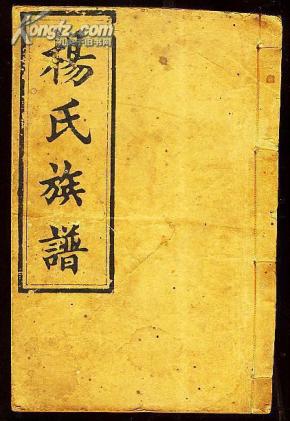 楊氏族譜
Kongfz.com
孔夫子旧书网